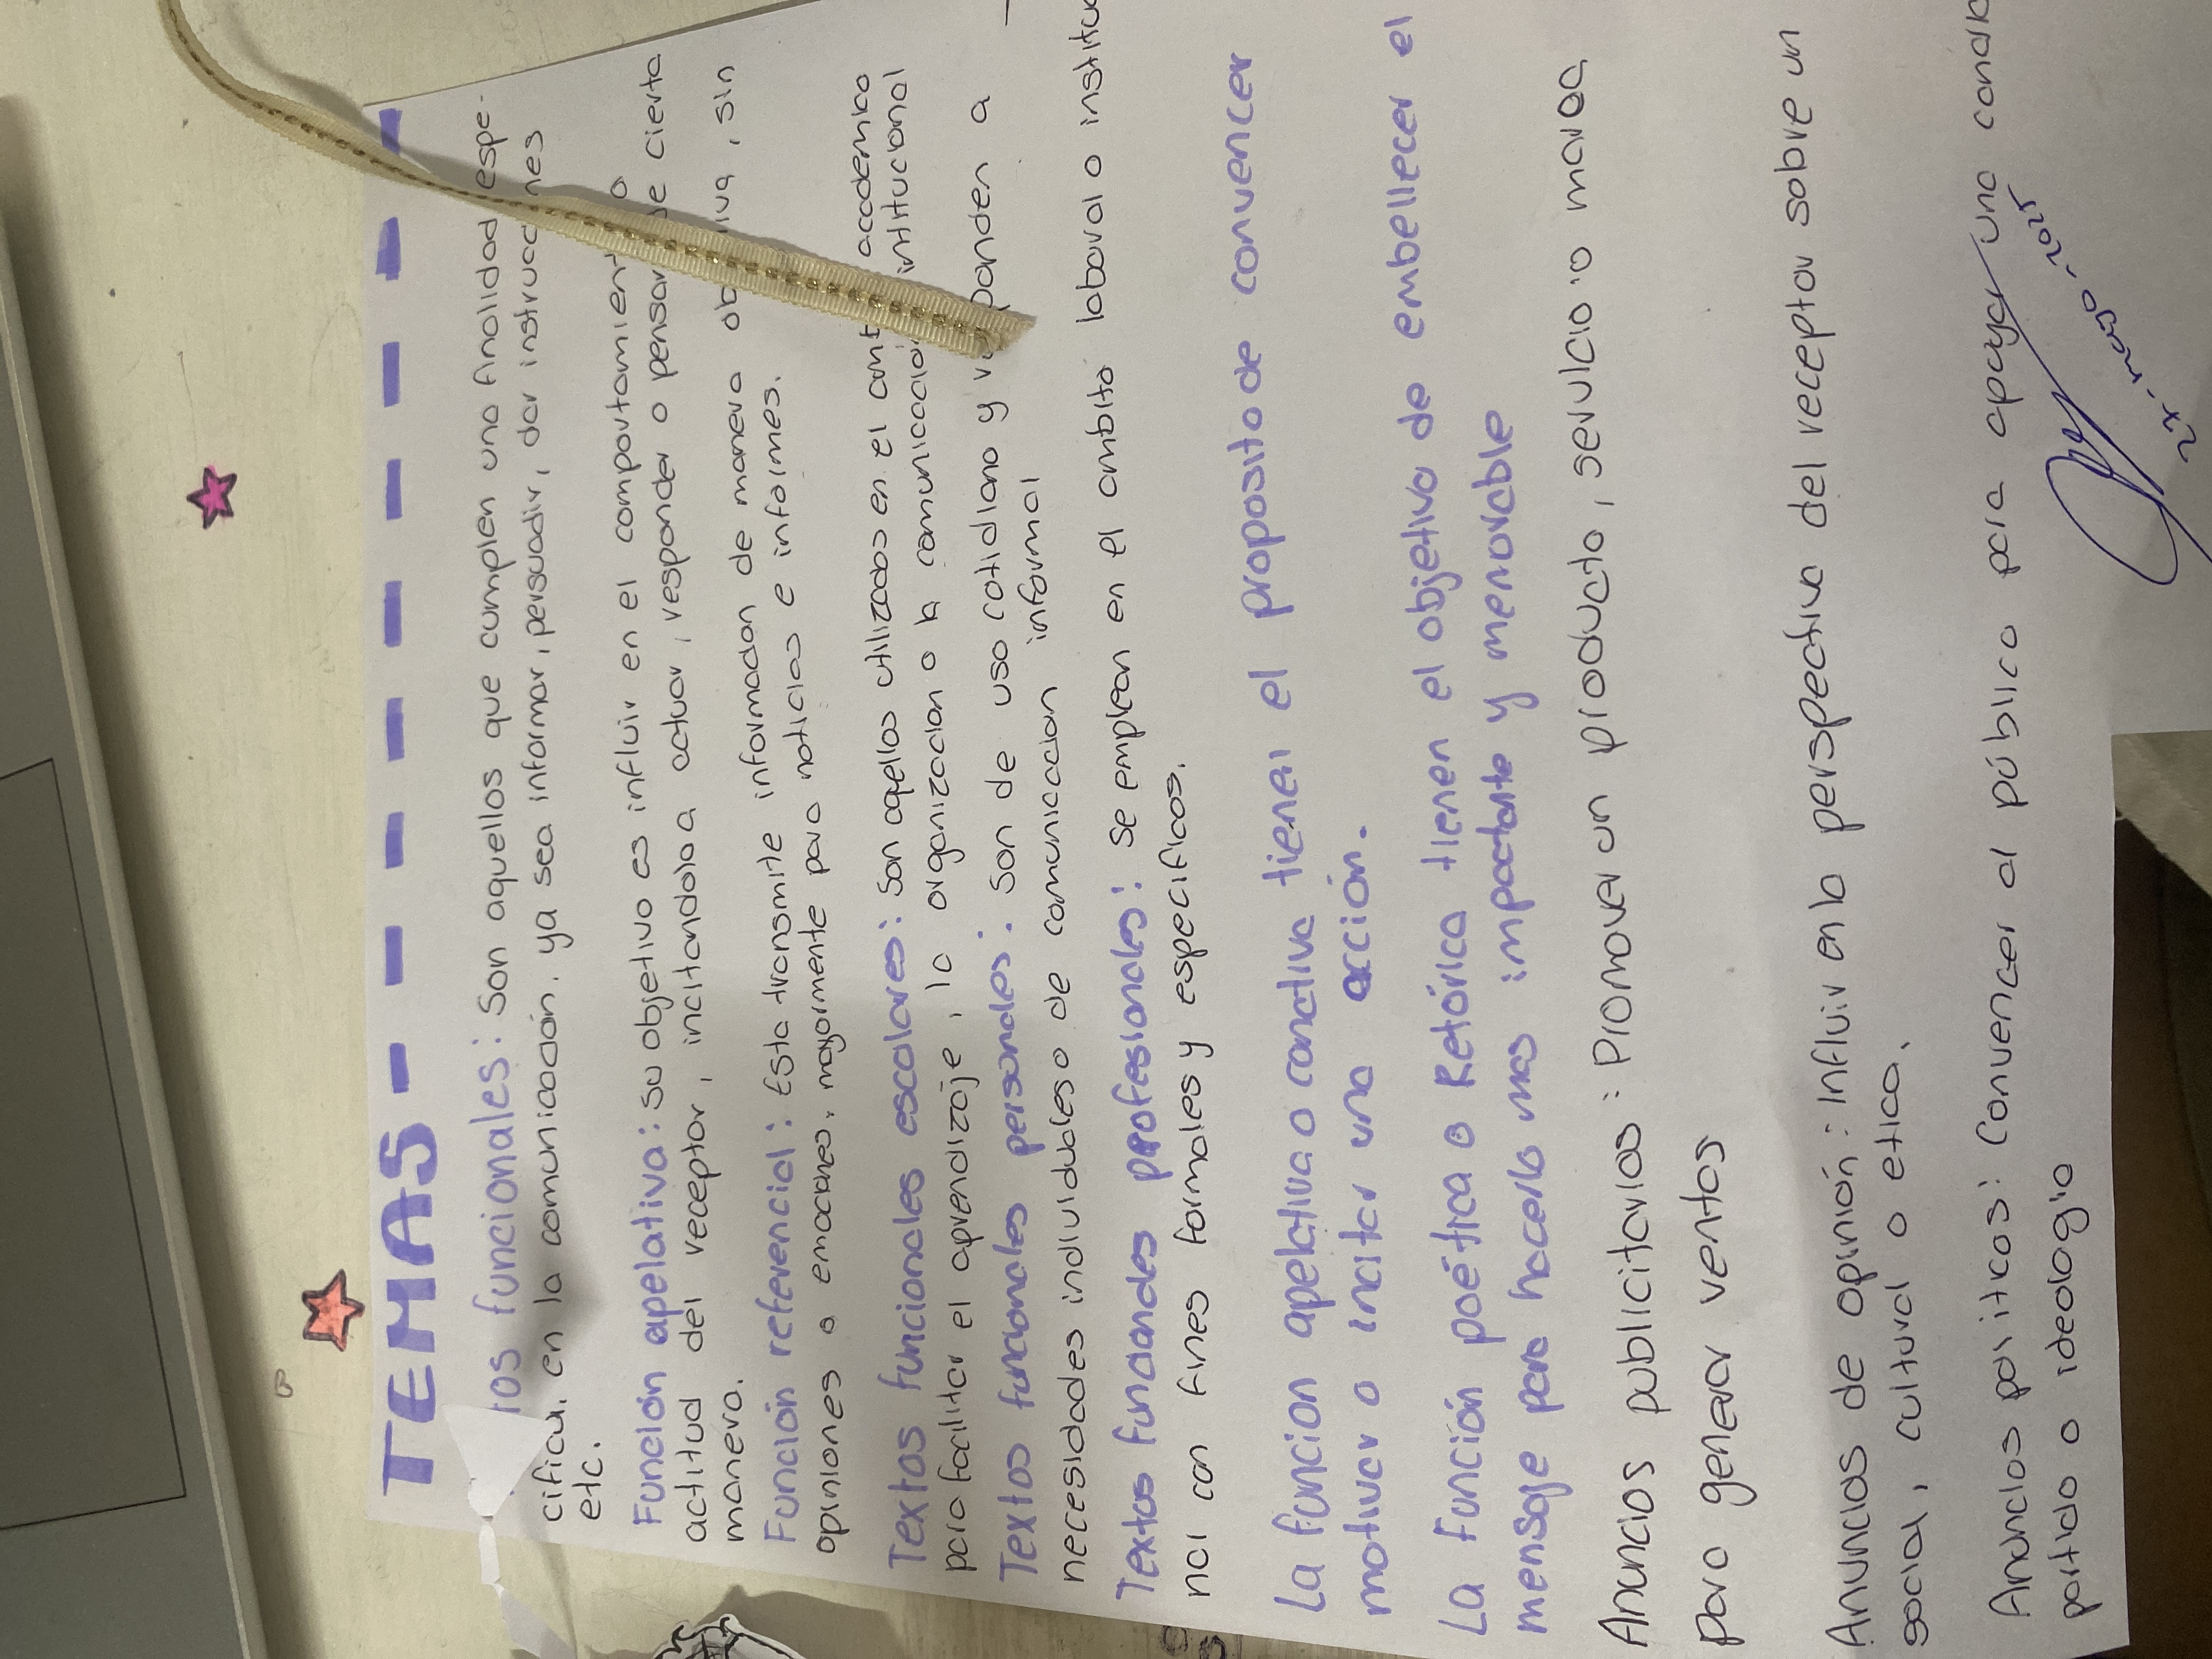 TEMAS
funcionales: Son aquellos que cumplen una finalidad espe-
en la comunicación. ya sea informar, persuadir, dar
etc.
Función apelativa: su objetivo es influir en el
actitud del receptor, incitandolo a actuar, responder o pensar cierta
manera.
Función referencial: Esta transmite informacion de manera , sin
opiniones o emociones. mayormente para noticias e informes.
Textos funcionales escolares: Son aquellos utilizados en el academico
para facilitar el aprendizaje, la organizacion o la intitucional
Textos funcionales personales: son de uso cotidiano y a
necesidades individuales o de comunicacion informal
Textos funcionales profesionales: se emplean en el ambito laboral o
nal con fines formales y especificos.
La funcion apelativa o conativa tienen el proposito de convencer
motivar o incitar una acción.
La Función poética o Retórica tienen el objetivo de embellecer el
mensaje para hacerlo mas impactante y memorable
Anuncios publicitarios: Promover un producto, servicio o marca
para generar ventas
Anuncios de opinión: Influir en la perspectiva del receptor sobre un
social, cultural o etica.
Anuncios politicos: Convencer al público para apoyar una
partido o ideologia